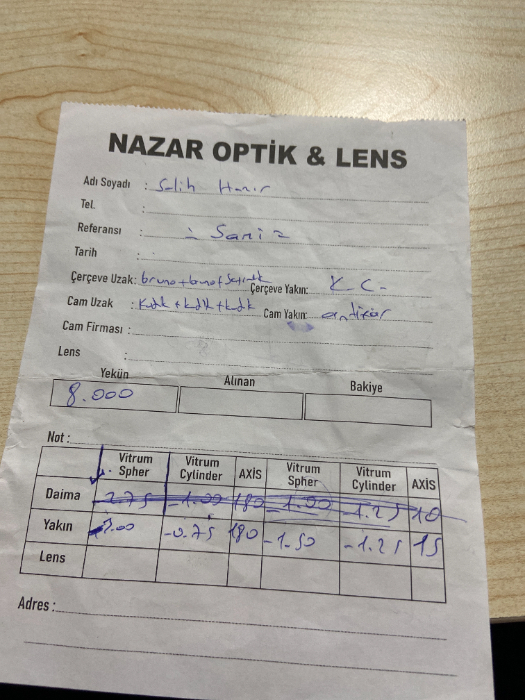 NAZAR OPTİK & LENS
Adı Soyadı : Salih
Tel. :
Referansı :
Tarih :
Çerçeve Uzak: Çerçeve Yakın: K C-
Cam Uzak : Kdk + kdk + kdk Cam Yakın:
Cam Firması :
Lens :
Yekün Alınan Bakiye
8.000
Not :
Vitrum Spher Vitrum Cylinder AXİS Vitrum Spher Vitrum Cylinder AXİS
Daima -2.75 -1.00 180 -1.00 -1.25 10
Yakın -0.75 180 -1.50 -1.25 15
Lens
Adres :